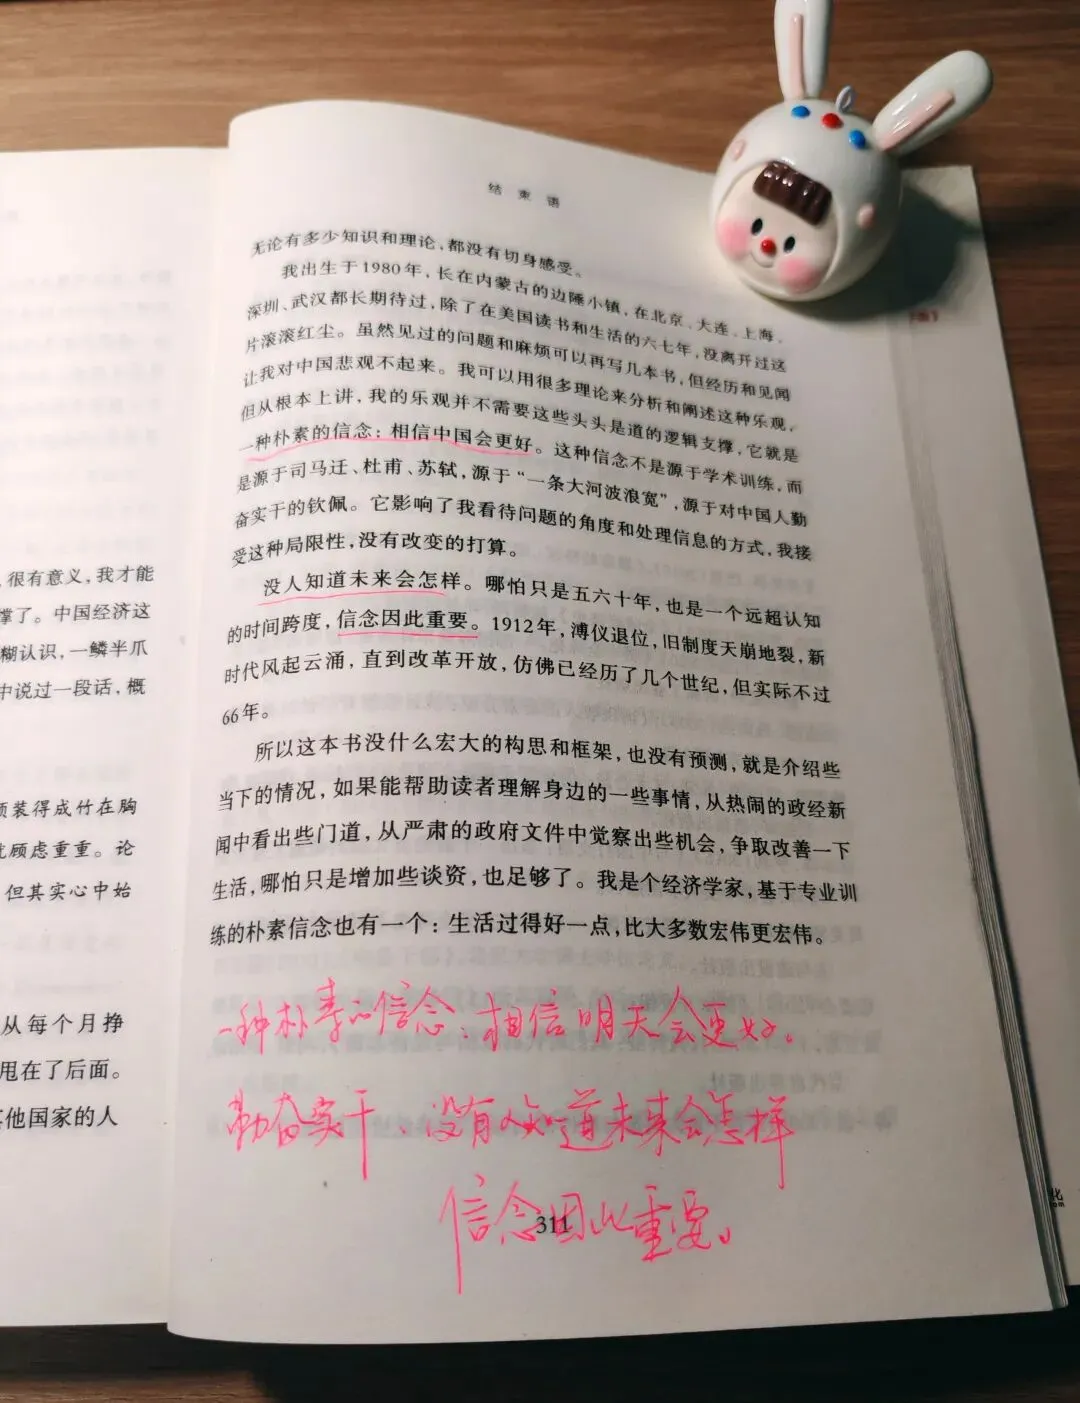 很有意义，我才能
撑了。中国经济这
糊认识，一鳞半爪
中说过一段话，概
装得成竹在胸
就顾虑重重。论
但其实心中始
从每个月挣
甩在了后面。
其他国家的人
结束语
无论有多少知识和理论，都没有切身感受。
我出生于1980年，长在内蒙古的边陲小镇，在北京、大连、上海、
深圳、武汉都长期待过，除了在美国读书和生活的六七年，没离开过这
片滚滚红尘。虽然见过的问题和麻烦可以再写几本书，但经历和见闻
让我对中国悲观不起来。我可以用很多理论来分析和阐述这种乐观，
但从根本上讲，我的乐观并不需要这些头头是道的逻辑支撑，它就是
一种朴素的信念：相信中国会更好。这种信念不是源于学术训练，而
是源于司马迁、杜甫、苏轼，源于“一条大河波浪宽”，源于对中国人勤
奋实干的钦佩。它影响了我看待问题的角度和处理信息的方式，我接
受这种局限性，没有改变的打算。
没人知道未来会怎样。哪怕只是五六十年，也是一个远超认知
的时间跨度，信念因此重要。1912年，溥仪退位，旧制度天崩地裂，新
时代风起云涌，直到改革开放，仿佛已经历了几个世纪，但实际不过
66年。
所以这本书没什么宏大的构思和框架，也没有预测，就是介绍些
当下的情况，如果能帮助读者理解身边的一些事情，从热闹的政经新
闻中看出些门道，从严肃的政府文件中觉察出些机会，争取改善一下
生活，哪怕只是增加些谈资，也足够了。我是个经济学家，基于专业训
练的朴素信念也有一个：生活过得好一点，比大多数宏伟更宏伟。
一种朴素的信念：相信明天会更好。
勤奋实干、没有人知道未来会怎样
信念因此重要。
311